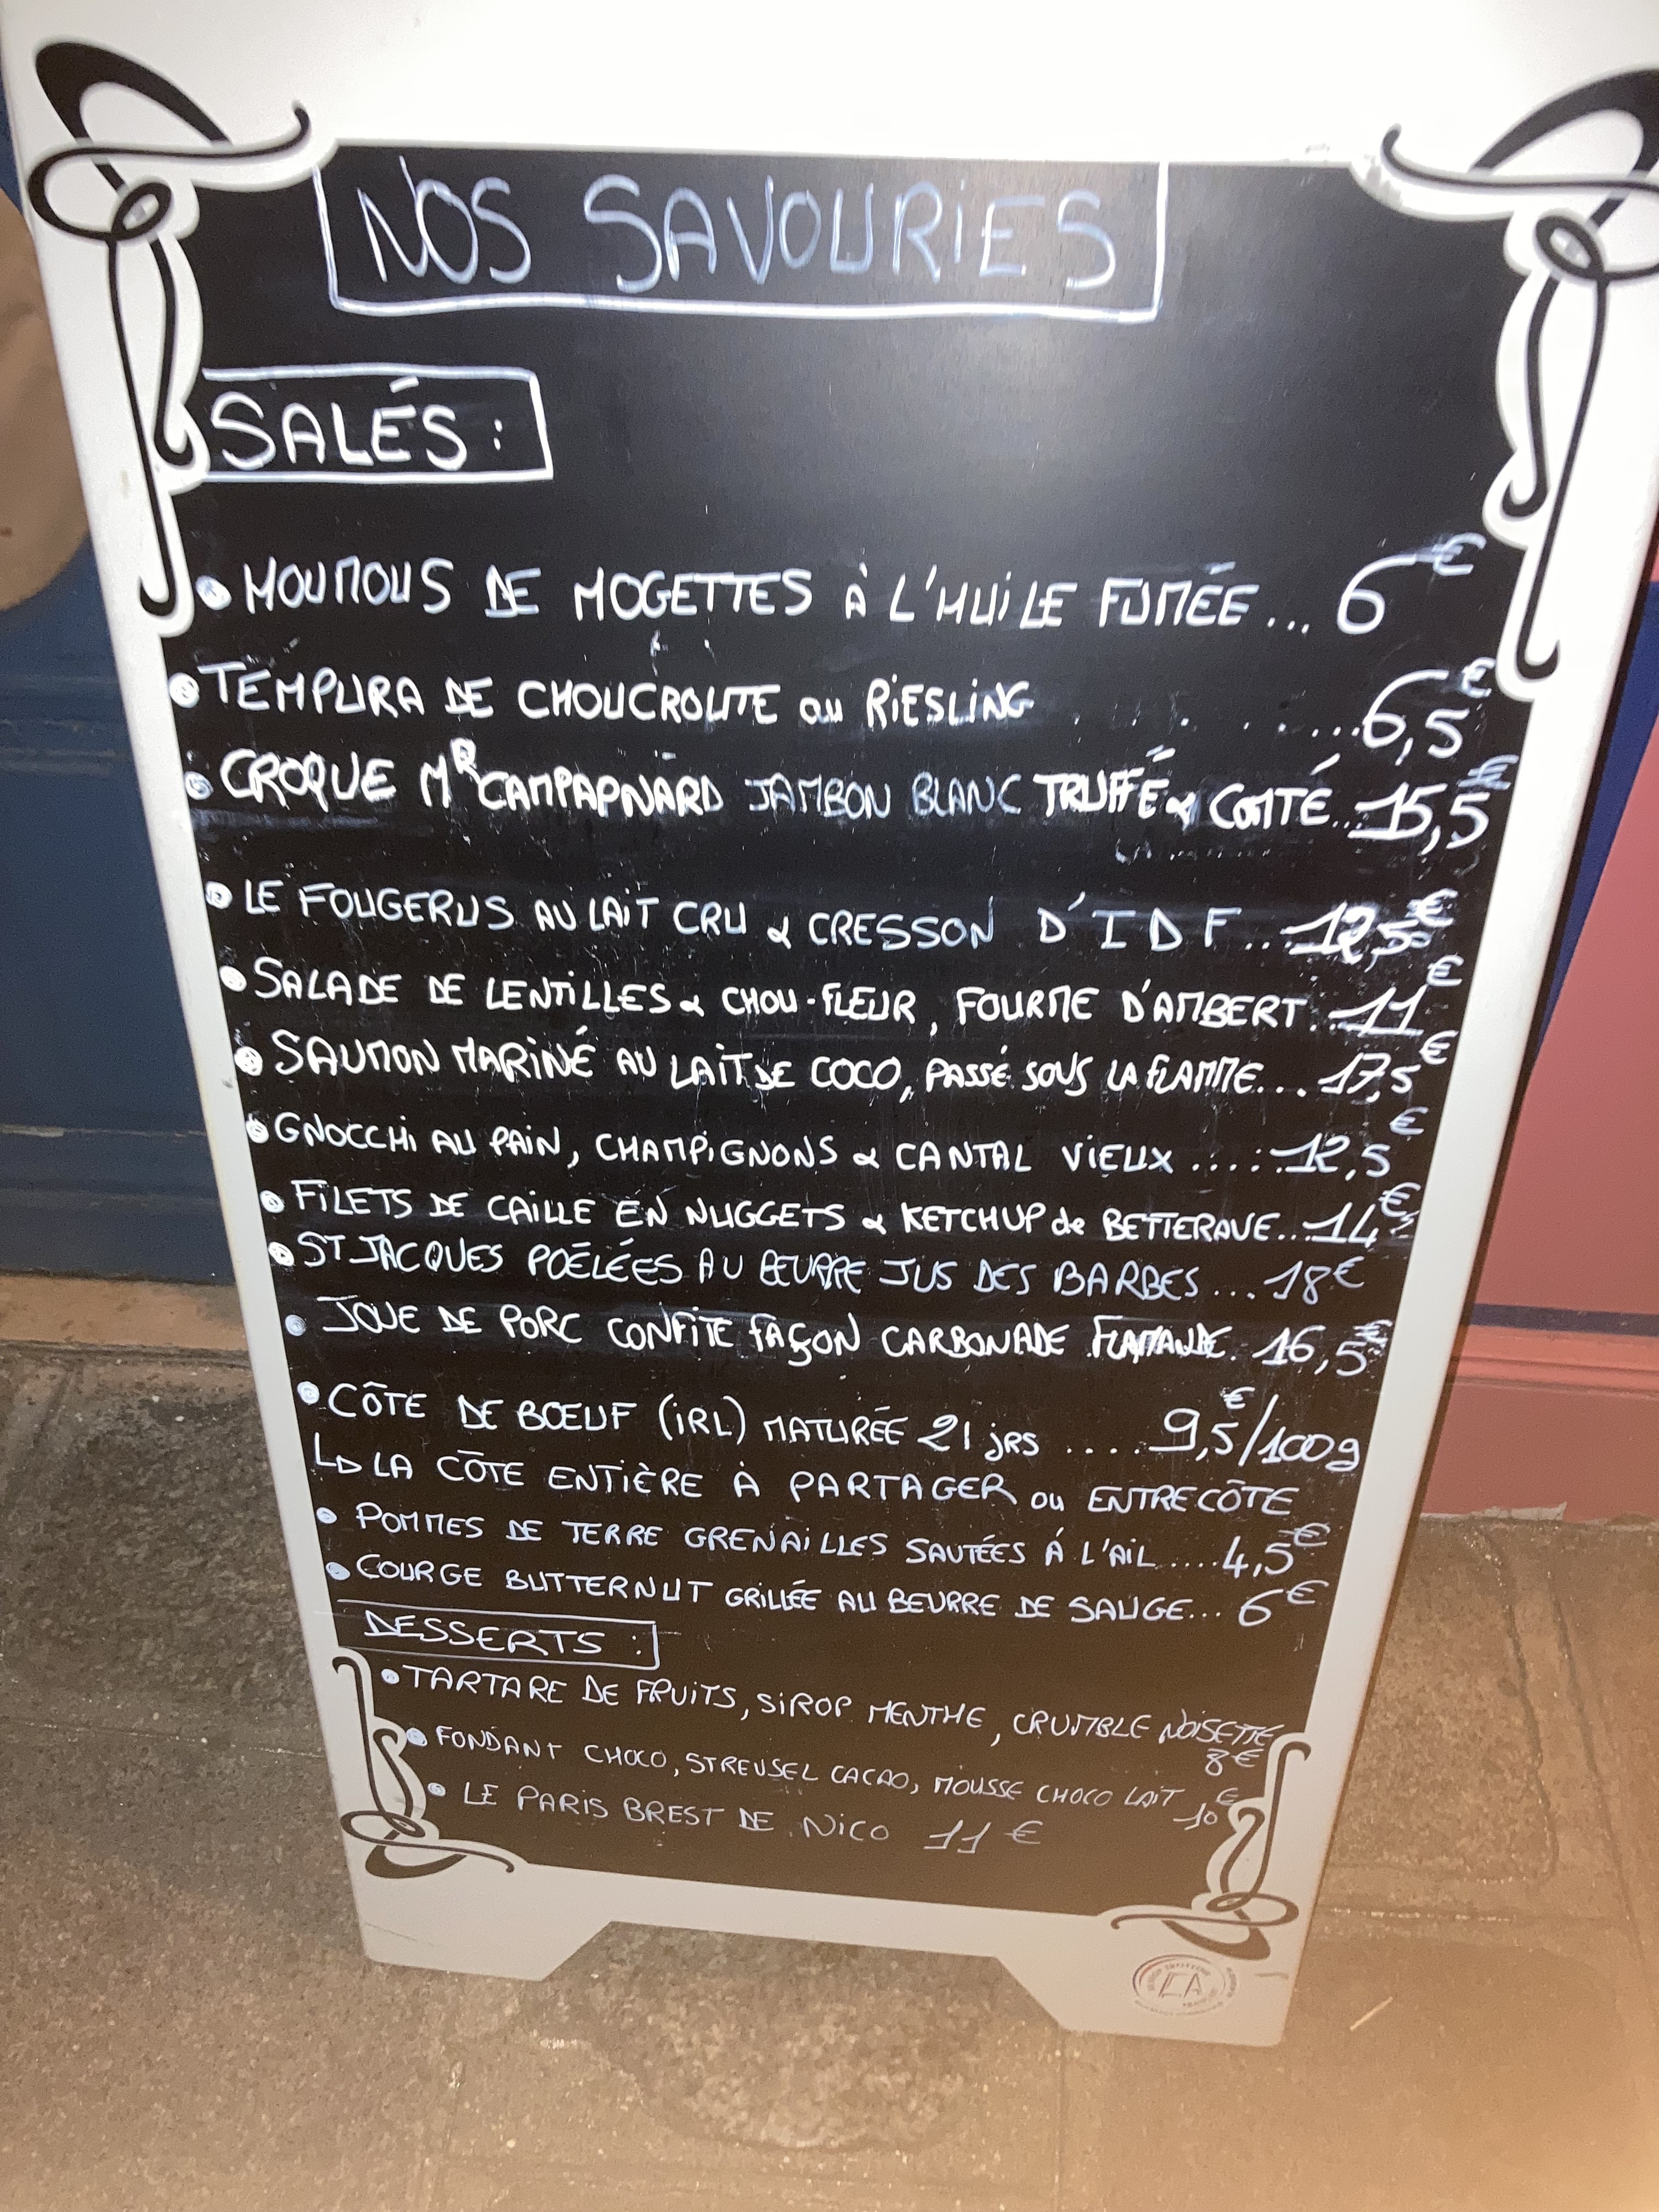 NOS SAVOURiES
SALÉS :
• HOUMOUS DE MOGETTES À L'HUiLE FUMÉE... 6€
• TEMPURA DE CHOUCROUTE au RiESLiNG . . . ....6,5€
• CROQUE MR CAMPAPNARD JAMBON BLANC TRUFFÉ & COMTÉ...15,5€
• LE FOUGERUS AU LAiT CRU & CRESSON D'IDF...12,5€
• SALADE DE LENTiLLES & CHOU-FLEUR, FOURME D'AMBERT...11€
• SAUMON MARiNÉ AU LAiT DE COCO, PASSÉ SOUS LA FLAMME...17,5€
• GNOCCHi AU PAiN, CHAMPiGNONS & CANTAL ViEUX ......12,5€
• FiLETS DE CAiLLE EN NUGGETS & KETCHUP de BETTERAVE...14€
• ST JACQUES POÊLÉES AU BEURRE JUS DES BARBES ...18€
• JOUE DE PORC CONFiTE façON CARBONADE FLAMANDE. 16,5€
• CÔTE DE BŒUF (iRL) MATURÉE 21 jRS .... 9,5€/100g
↳ LA CÔTE ENTiÈRE À PARTAGER ou ENTRECÔTE
• POMMES DE TERRE GRENAiLLES SAUTÉES À L'AiL ....4,5€
• COURGE BUTTERNUT GRiLLÉE AU BEURRE DE SAUGE... 6€
DESSERTS :
• TARTARE DE FRUiTS, SiROP MENTHE, CRUMBLE NOiSETTE
8€
• FONDANT CHOCO, STREUSEL CACAO, MOUSSE CHOCO LAiT 10€
• LE PARiS BREST DE NiCO 11€